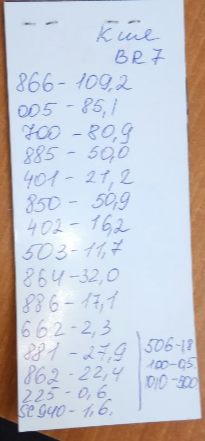 Кше
BR 7
866-109,2
005-85,1
700-80,9
885-50,0
401-21,2
850-50,9
402-16,2
503-11,7
864-32,0
886-17,1
662-2,3
881-27,9
862-22,4
225-0,6
SC940-1,6.
506-1,8
100-0,5
1010-300